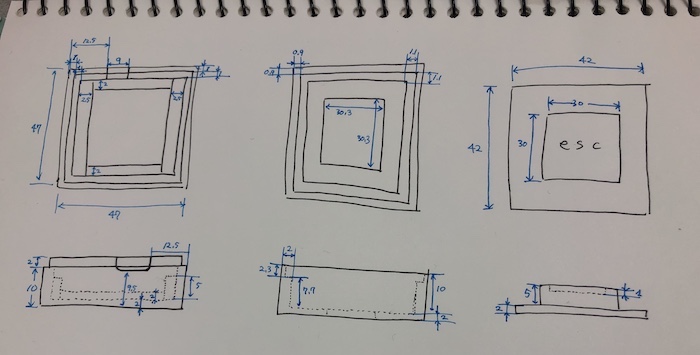 12.5
9
1
1
1
1
2
2.5
2.5
2
47
47
0.9
1.1
0.9
1.1
30.3
30.3
42
30
42
30
esc
12.5
2
10
9.5
2
2
5
2
2.3
7.7
10
2
5
1
2